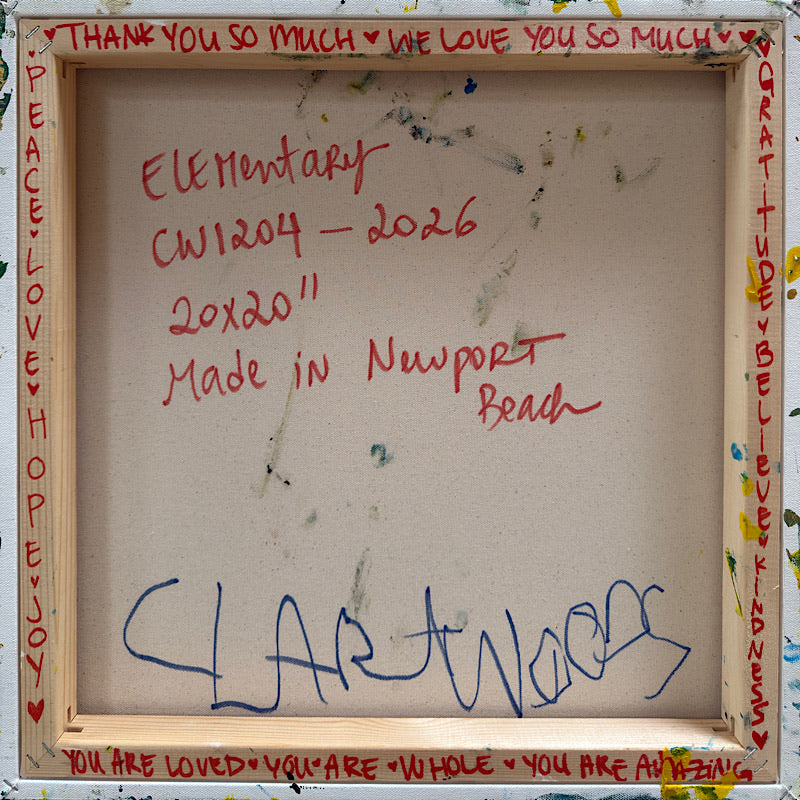 THANK YOU SO MUCH ♥ WE LOVE YOU SO MUCH ♥ ♥
♥ PEACE ♥ LOVE ♥ HOPE ♥ JOY ♥
ELEMentARY
CW1204 – 2026
20x20"
Made in NewpoRT
Beach
CLARtWOODS
♥ GRATiTUDE ♥ BELIEVE ♥ KINDNESS ♥
YOU ARE LOVED ♥ YOU ♥ ARE ♥ WHOLE ♥ YOU ARE AMAZiNG